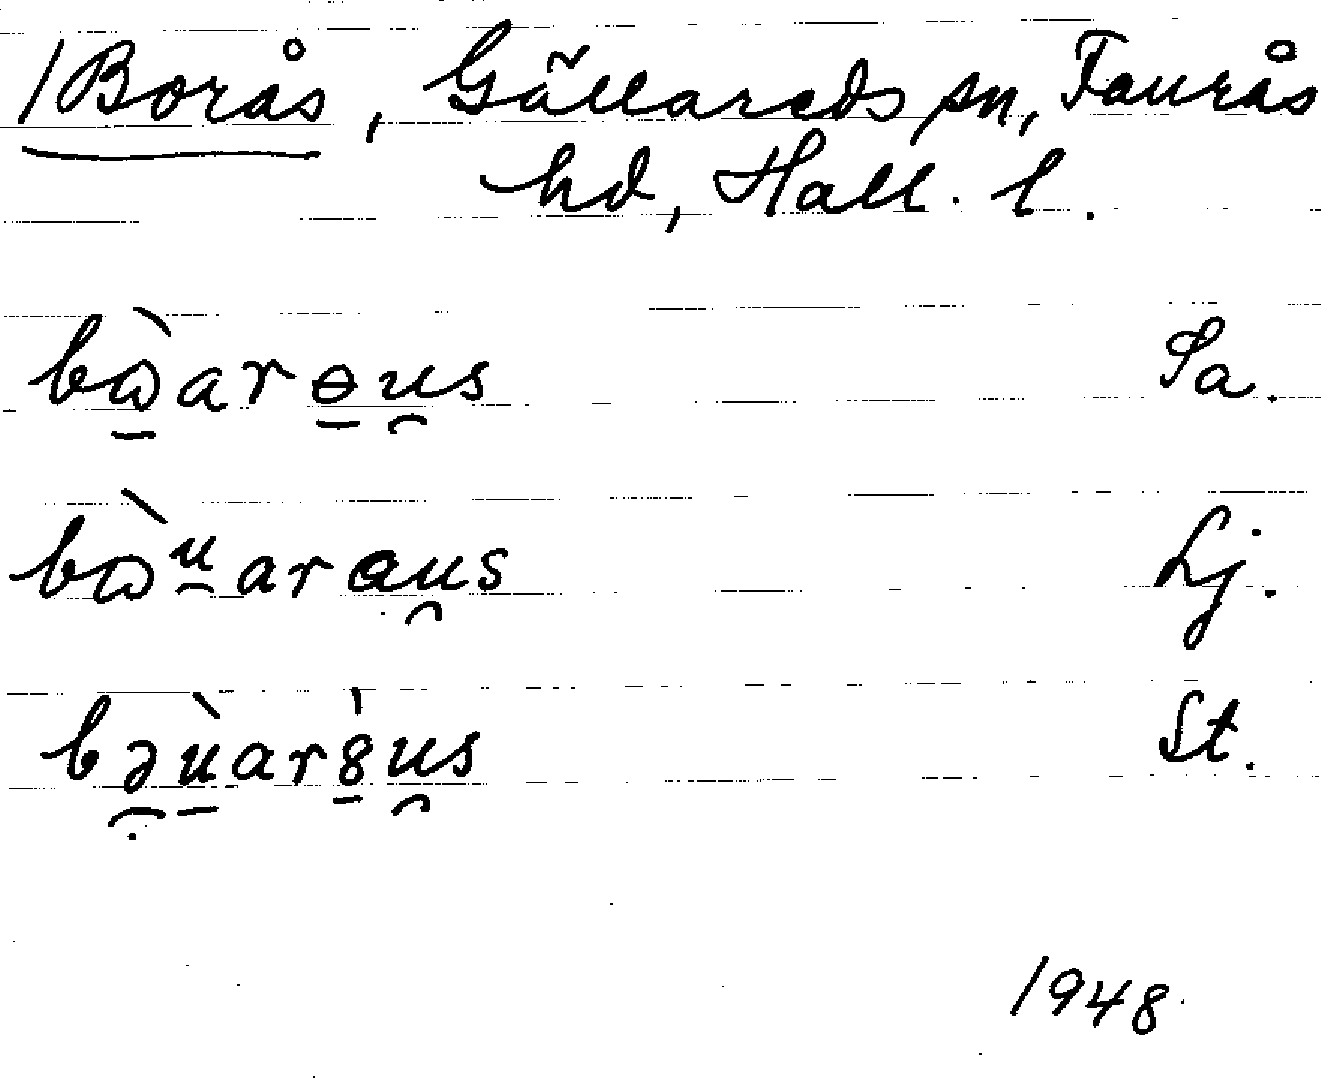 /Borås, Gällareds sn, Faurås
hd, Hall. l.
bɷ̠̀arɵ̠u̯s Sa.
bɷ̀ᵘarɑu̯s Lj.
bəù̠ar8̠̀u̯s St.
1948.